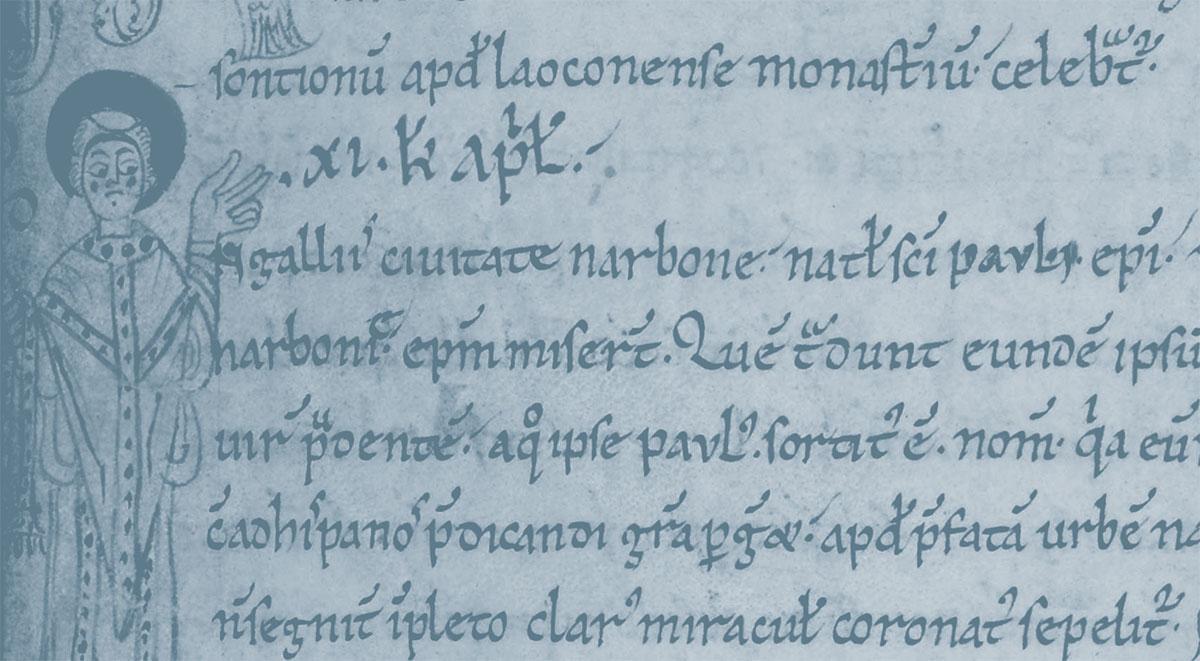 sontionū apđ laoconense monast̄iū· celeb̄t̄·
·xi· kł apłł·
galliis ciuitate narbone· natł sc̄i pavli ep̄i·
narbon̄· ep̄m miser̄t· Quē t̄dunt eundē ipsu
uir p̄dentē· aq° ipse pavlꝰ· sortit̄ ē· nom̄· qⁱa eū
c̄ ad hispanos p̄dicandi gr̄a ꝑg̅e· apđ p̄fatā urbē na
n̄ segnit̄ īpleto clarꝰ miracuł coronatꝰ sepelit̄·